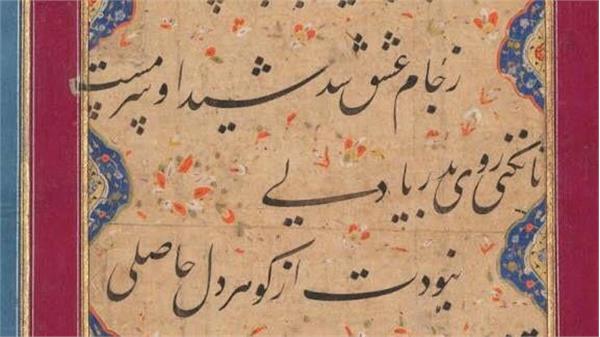 ز جام عشق شد شیدا و سرمست
تا نکنی روی بدریا دلی
نبودت از گوهر دل حاصلی